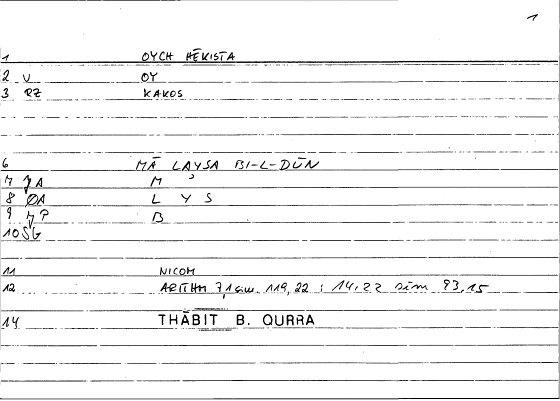 1
1 OYCH HĒKISTA
2 V OY
3 RZ KAKOS
6 MĀ LAYSA BI-L-DŪN
7 JA M ʾ
8 ØA L Y S
9 JP B
10 SG
11 NICOM
12 ARITHM 119,22 ; 14,22 sim 93,15
14 THĀBIT B. QURRA